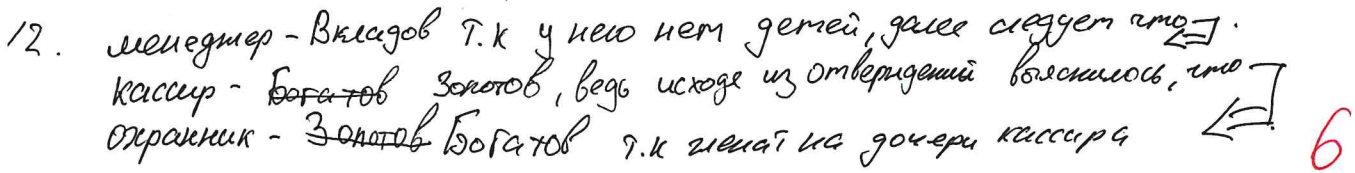 12. менеджер - Вкладов т.к у него нет детей, далее следует что
кассир - ~~Богатов~~ Золотов, ведь исходя из отверждений выяснилось, что
охранник - ~~Золотов~~ Богатов т.к женат на дочери кассира
6